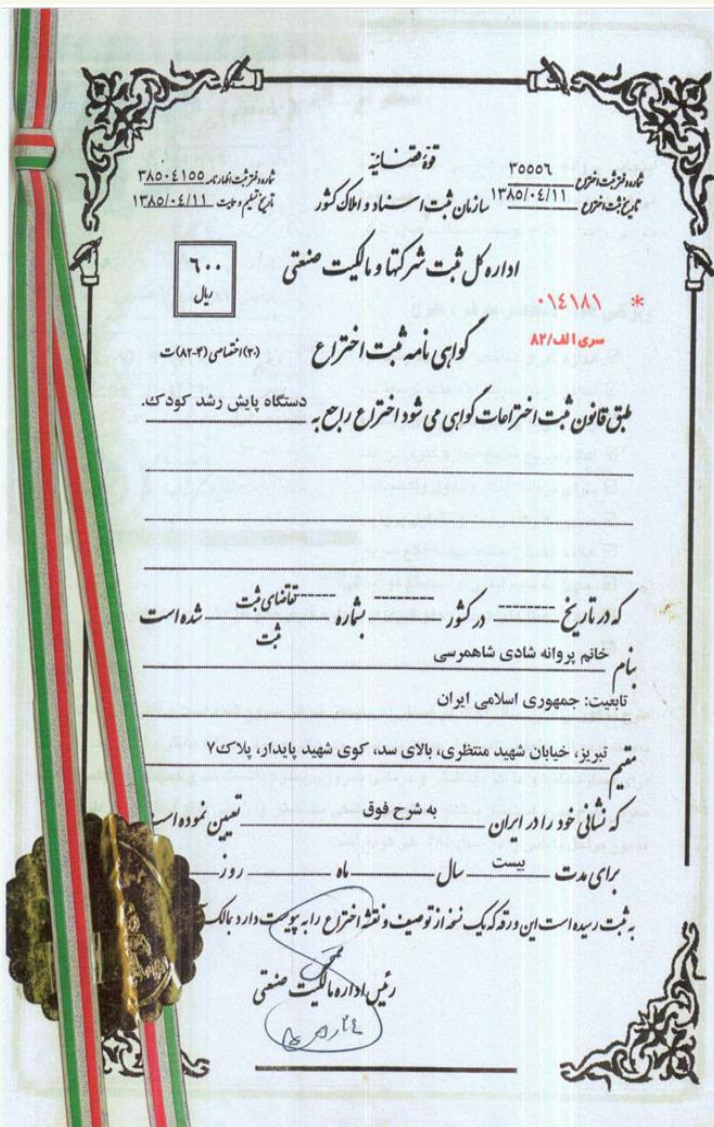 قوهٔ قضائیه
شماره دفتر ثبت اختراع ۳۵۵۵۶
تاریخ ثبت اختراع ۱۳۸۵/۰۴/۱۱
سازمان ثبت اسناد و املاک کشور
شماره دفتر ثبت اظهارنامه ۳۸۵۰۴۱۵۵
تاریخ تسلیم ۱۳۸۵/۰۴/۱۱
اداره کل ثبت شرکتها و مالکیت صنعتی
۶۰۰
ریال
* ۰۱۴۱۸۱
سری الف/۸۲
گواهی نامه ثبت اختراع
(۳۰) اختصاصی (۴-۸۲)ت
طبق قانون ثبت اختراعات گواهی می شود اختراع راجع به دستگاه پایش رشد کودک.
که در تاریخ -------- در کشور -------- بشماره ------ تقاضای ثبت شده است
ثبت
بنام خانم پروانه شادی شاهمرسی
تابعیت: جمهوری اسلامی ایران
مقیم تبریز، خیابان شهید منتظری، بالای سد، کوی شهید پایدار، پلاک۷
که نشانی خود را در ایران به شرح فوق تعیین نموده است
برای مدت بیست سال ماه روز
به ثبت رسیده است این ورقه که یک نسخه از توصیف و نقشه اختراع را به پیوست دارد بالک
رئیس اداره مالکیت صنعتی